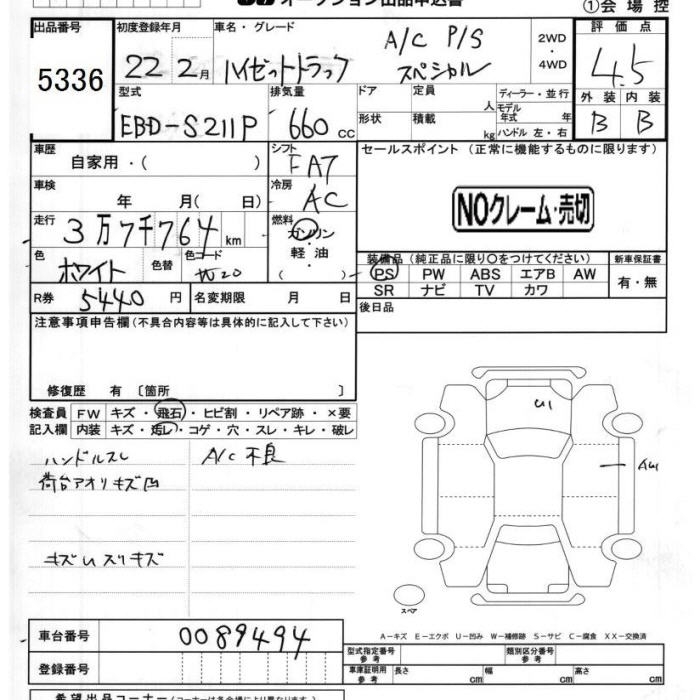 オークション出品申込書
①会場控
出品番号 初度登録年月 車名・グレード 評価点
5336 22 2月 ハイゼットトラック A/C P/S スペシャル 2WD ・ 4WD 4.5
型式 排気量 ドア 定員 人 ディーラー・並行 外装 内装
EBD-S211P 660cc 形状 積載 kg モデル年式 年 ハンドル 左・右 B B
車歴 シフト セールスポイント(正常に機能するものに限ります)
自家用・( ) FAT
車検 冷房
年 月( 日) AC
NOクレーム・売切
走行 燃料
3万7千764km ガソリン・軽油( )
色 色替 色コード 装備品(純正品に限り○をつけてください) 新車保証書
ホワイト W20 PS PW ABS エアB AW 有・無
SR ナビ TV カワ
R券 5440円 名変期限 月 日 後日品
注意事項申告欄(不具合内容等は具体的に記入して下さい)
修復歴 有〔箇所 〕
検査員 FW キズ・飛石・ヒビ割・リペア跡・×要
記入欄 内装 キズ・汚レ・コゲ・穴・スレ・キレ・破レ
U1
AU1
ハンドルスレ A/C不良
荷台アオリキズ凹
キズUスリキズ
スペア
A-キズ E-エクボ U-凹み W-補修跡 S-サビ C-腐食 XX-交換済
車台番号 0089494
型式指定番号 参考 類別区分番号 参考
登録番号 車庫証明用 参考 長さ cm 幅 cm 高さ cm
希望出品コーナー(コーナーは各会場により異なります)